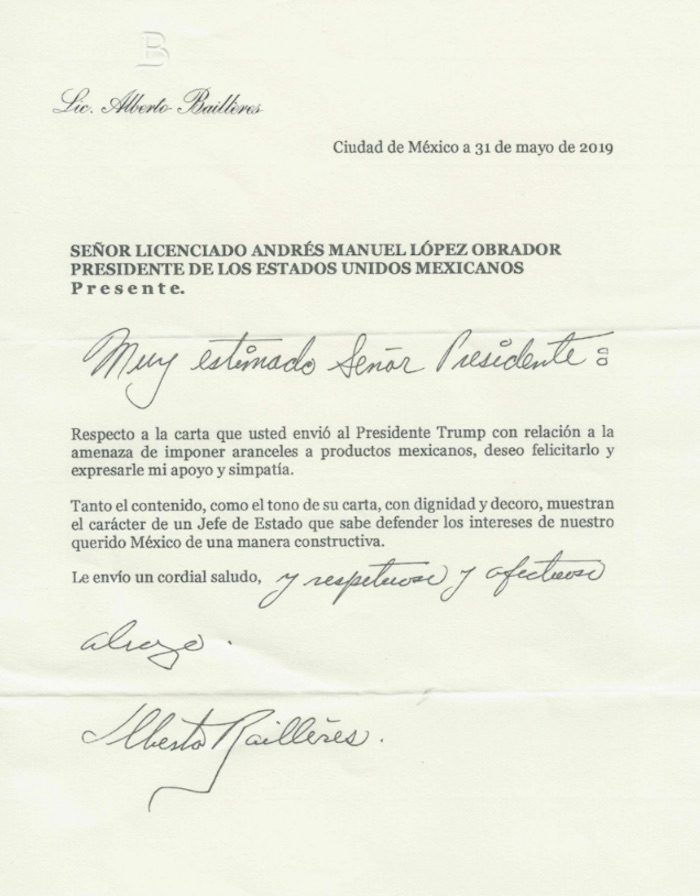 B
Lic. Alberto Baillères
Ciudad de México a 31 de mayo de 2019
SEÑOR LICENCIADO ANDRÉS MANUEL LÓPEZ OBRADOR
PRESIDENTE DE LOS ESTADOS UNIDOS MEXICANOS
Presente.
Muy estimado Señor Presidente:
Respecto a la carta que usted envió al Presidente Trump con relación a la
amenaza de imponer aranceles a productos mexicanos, deseo felicitarlo y
expresarle mi apoyo y simpatía.
Tanto el contenido, como el tono de su carta, con dignidad y decoro, muestran
el carácter de un Jefe de Estado que sabe defender los intereses de nuestro
querido México de una manera constructiva.
Le envío un cordial saludo, y respetuoso y afectuoso
abrazo.
Alberto Baillères.